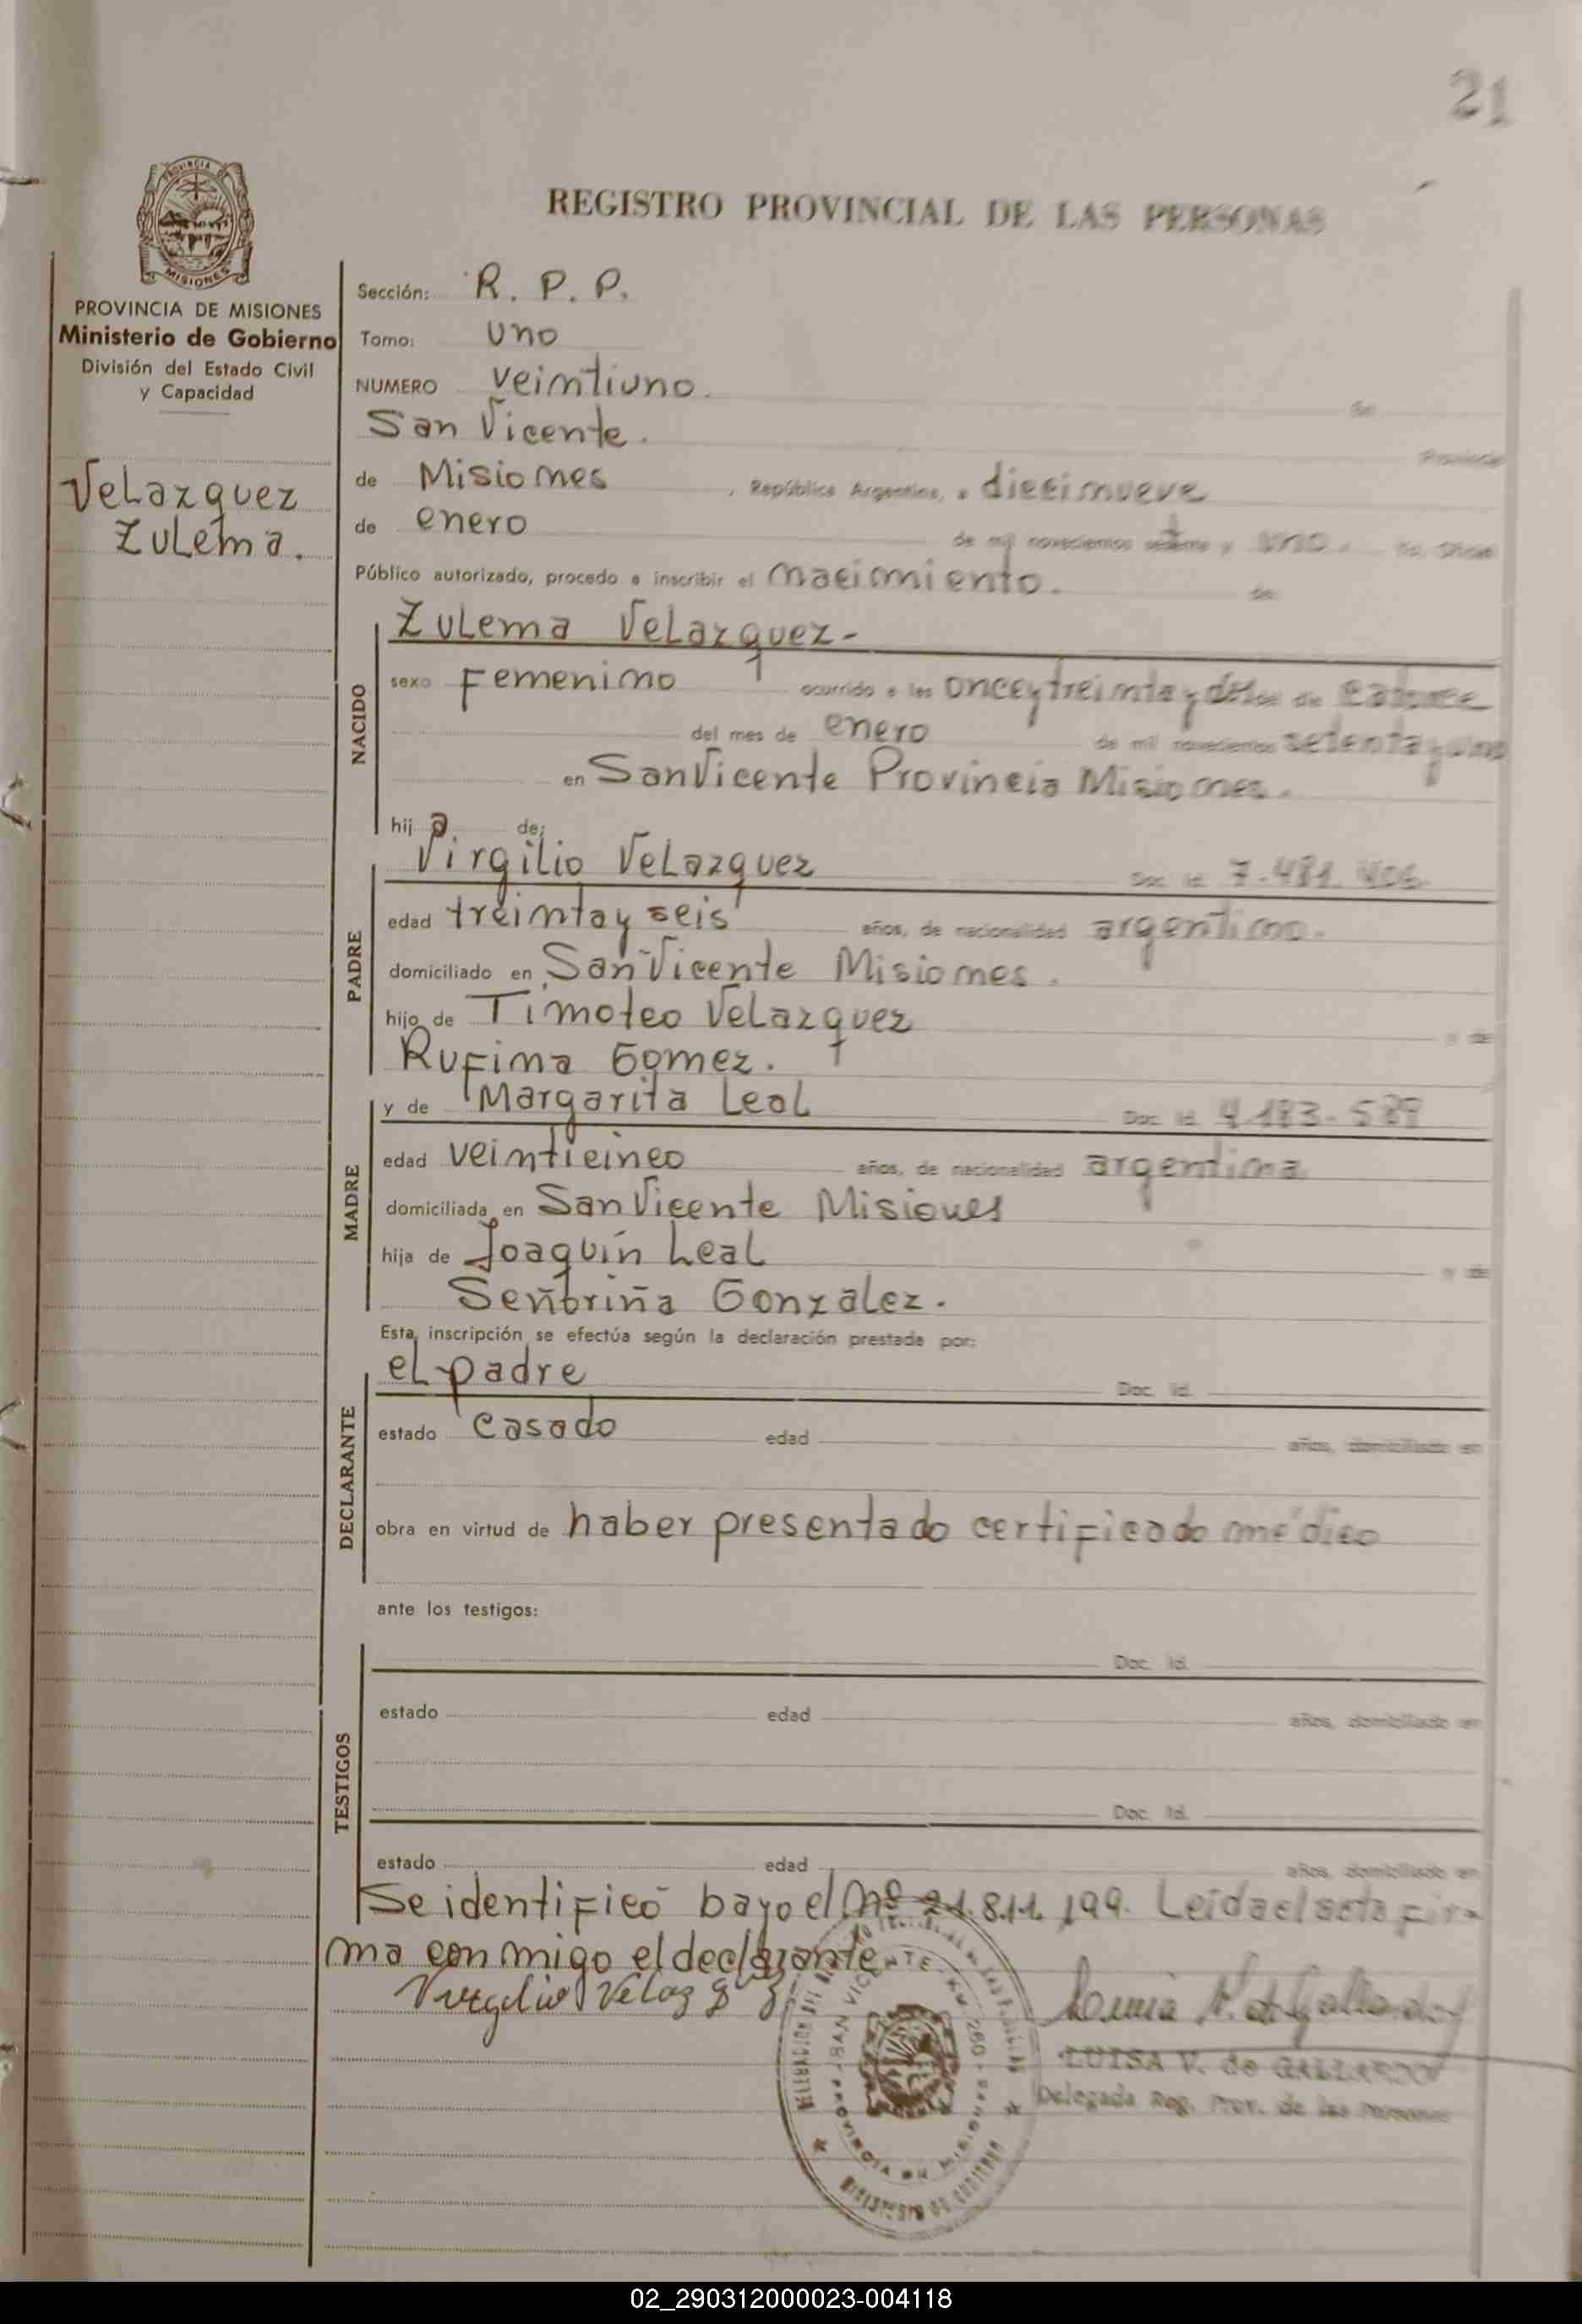 21
PROVINCIA DE
MISIONES
REGISTRO PROVINCIAL DE LAS PERSONAS
PROVINCIA DE MISIONES
Ministerio de Gobierno
División del Estado Civil
y Capacidad
Velazquez
Zulema.
Sección: R. P. P.
Tomo: uno
NUMERO veintiuno. En
San Vicente. Provincia
de Misiones, República Argentina, a diecinueve
de enero de mil novecientos setenta y uno. Yo, Oficial
Público autorizado, procedo a inscribir el nacimiento. de:
NACIDO
Zulema Velazquez-
sexo Femenino ocurrido a las once y treinta y dos de catorce
del mes de enero de mil novecientos setenta y uno
en San Vicente Provincia Misiones.
hija de:
PADRE
Virgilio Velazquez Doc. Id. 7.481.406
edad treinta y seis años, de nacionalidad argentino.
domiciliado en San Vicente Misiones.
hijo de Timoteo Velazquez y de
Rufina Gomez.
MADRE
y de Margarita Leal Doc. Id. 4.183-589
edad veinticinco años, de nacionalidad argentina
domiciliada en San Vicente Misiones
hija de Joaquín Leal y de
Señoriña González.
Esta inscripción se efectúa según la declaración prestada por:
DECLARANTE
el padre Doc. Id.
estado casado edad años, domiciliado en
obra en virtud de haber presentado certificado médico
ante los testigos:
TESTIGOS
Doc. Id.
estado edad años, domiciliado en
Doc. Id.
estado edad años, domiciliado en
Se identificó bajo el Nº 21.811.199. Leída el acta fir-
ma conmigo el declarante
Virgilio Velazq
LUISA V. de GALLARDO
Delegada Reg. Prov. de las Personas
SAN VICENTE
PROVINCIA DE MISIONES
MINISTERIO DE GOBIERNO
02_290312000023-004118